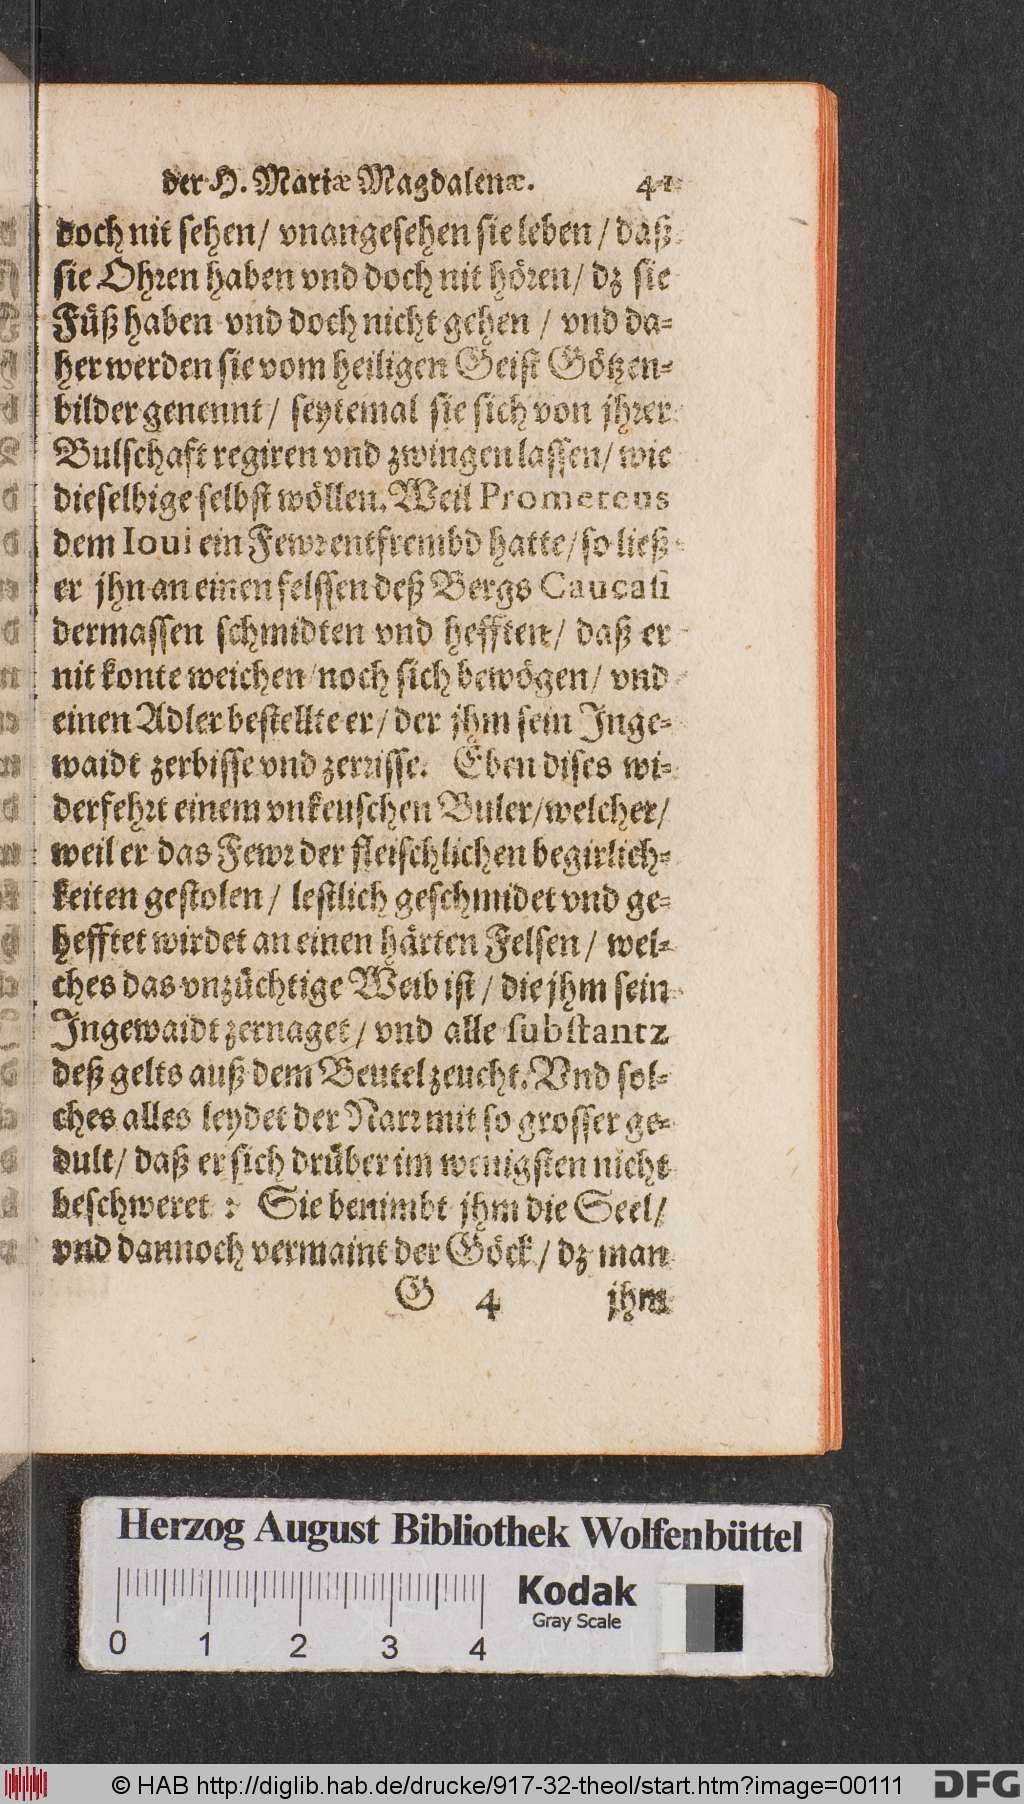 der H. Mariæ Magdalenæ. 41
doch nit sehen/ vnangesehen sie leben/ daß
sie Ohren haben vnd doch nit hören/ dz sie
Füß haben vnd doch nicht gehen / vnd da-
her werden sie vom heiligen Geist Götzen-
bilder genennt/ seytemal sie sich von jhrer
Bulschafft regiren vnd zwingen lassen/ wie
dieselbige selbst wöllen. Weil Prometeus
dem Ioui ein Fewr entfrembd hatte/ so ließ
er jhn an einen felssen deß Bergs Caucasi
dermassen schmidten vnd hefften/ daß er
nit konte weichen/ noch sich bewögen/ vnd
einen Adler bestellte er/ der jhm sein Inge-
waidt zerbisse vnd zerrisse. Eben dises wi-
derfehrt einem vnkeuschen Buler/welcher/
weil er das Fewr der fleischlichen begirlich-
keiten gestolen/ lestlich geschmidet vnd ge-
hefftet wirdet an einen härten Felsen/ wel-
ches das vnzüchtige Weib ist/ die jhm sein
Ingewaidt zernaget/ vnd alle substantz
deß gelts auß dem Beutel zeucht. Vnd sol-
ches alles leydet der Narr mit so grosser ge-
dult/ daß er sich drüber im wenigsten nicht
beschweret : Sie benimbt jhm die Seel/
vnd dannoch vermaint der Göck/ dz man
G 4 jhm
Herzog August Bibliothek Wolfenbüttel
Kodak
Gray Scale
0 1 2 3 4
© HAB http://diglib.hab.de/drucke/917-32-theol/start.htm?image=00111
DFG